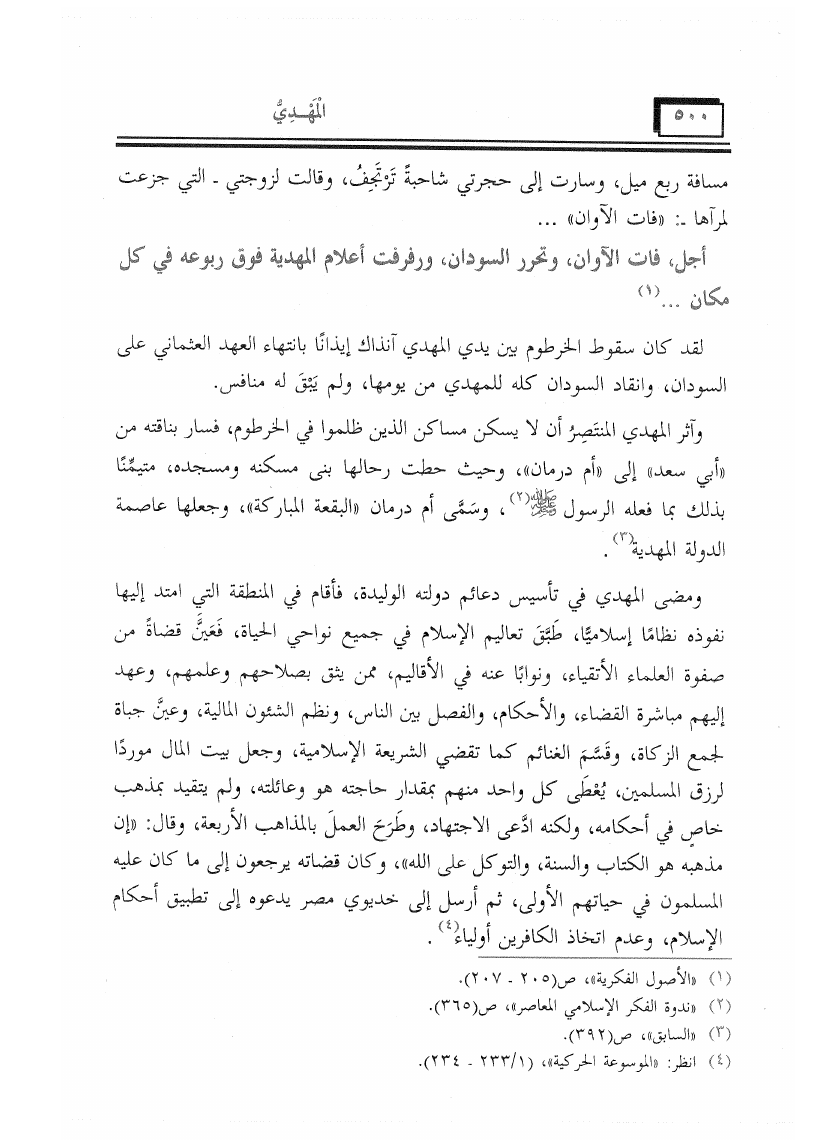 ٥٠٠
الْمَهْـدِيُّ
مسافة ربع ميل، وسارت إلى حجرتي شاحبةً تَرْتَجِفُ، وقالت لزوجتي ـ التي جزعت
لمرآها ـ: «فات الآوان» ...
أجل، فات الآوان، وتحرر السودان، ورفرفت أعلام المهدية فوق ربوعه في كل
مكان ...(١)
لقد كان سقوط الخرطوم بين يدي المهدي آنذاك إيذانًا بانتهاء العهد العثماني على
السودان، وانقاد السودان كله للمهدي من يومها، ولم يَبْقَ له منافس.
وآثر المهدي المنتَصِرُ أن لا يسكن مساكن الذين ظلموا في الخرطوم، فسار بناقته من
«أبي سعد» إلى «أم درمان»، وحيث حطت رحالها بنى مسكنه ومسجده، متيمِّنًا
بذلك بما فعله الرسول ﷺ(٢)، وسَمَّى أم درمان «البقعة المباركة»، وجعلها عاصمة
الدولة المهدية(٣).
ومضى المهدي في تأسيس دعائم دولته الوليدة، فأقام في المنطقة التي امتد إليها
نفوذه نظامًا إسلاميًّا، طَبَّقَ تعاليم الإسلام في جميع نواحي الحياة، فَعَيَّنَ قضاةً من
صفوة العلماء الأتقياء، ونوابًا عنه في الأقاليم، ممن يثق بصلاحهم وعلمهم، وعهد
إليهم مباشرة القضاء، والأحكام، والفصل بين الناس، ونظم الشئون المالية، وعينَّ جباة
لجمع الزكاة، وقَسَّمَ الغنائم كما تقضي الشريعة الإسلامية، وجعل بيت المال موردًا
لرزق المسلمين، يُعْطَى كل واحد منهم بمقدار حاجته هو وعائلته، ولم يتقيد بمذهب
خاصٍ في أحكامه، ولكنه ادَّعى الاجتهاد، وطَرَحَ العملَ بالمذاهب الأربعة، وقال: «إن
مذهبه هو الكتاب والسنة، والتوكل على الله»، وكان قضاته يرجعون إلى ما كان عليه
المسلمون في حياتهم الأولى، ثم أرسل إلى خديوي مصر يدعوه إلى تطبيق أحكام
الإسلام، وعدم اتخاذ الكافرين أولياء(٤).
(١) «الأصول الفكرية»، ص(٢٠٥ ـ ٢٠٧).
(٢) «ندوة الفكر الإسلامي المعاصر»، ص(٣٦٥).
(٣) «السابق»، ص(٣٩٢).
(٤) انظر: «الموسوعة الحركية»، (٢٣٣/١ ـ ٢٣٤).